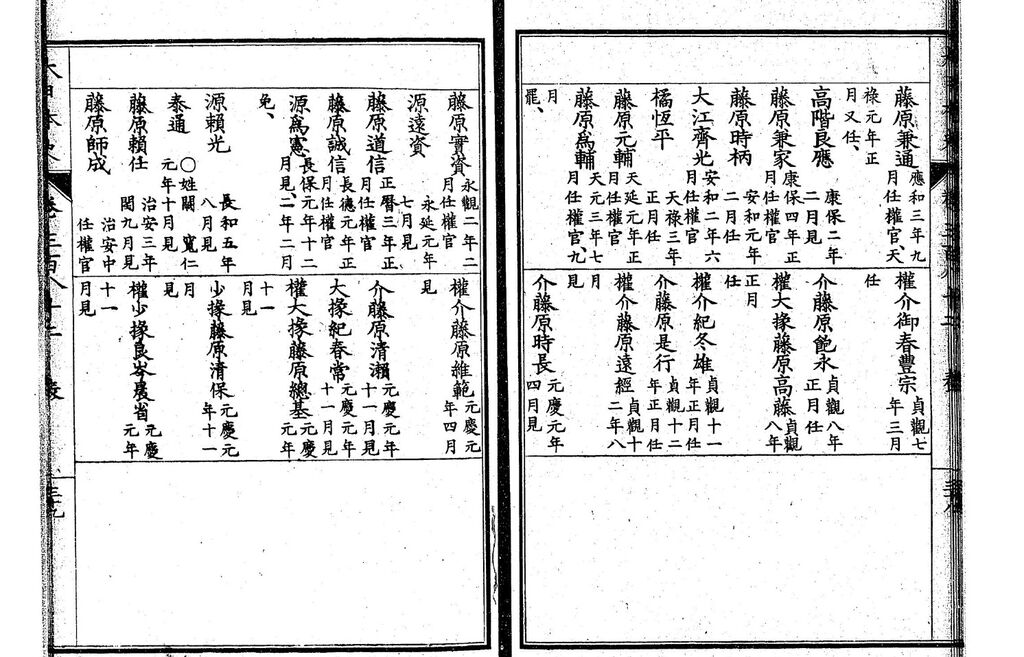 藤原兼通 應和三年九月任權官、天
祿元年正月又任、
高階良應 康保二年二月見
藤原兼家 康保四年正月任權官
藤原時柄 安和元年二月任
大江齊光 安和二年六月任權官
橘恆平 天祿三年正月任
藤原元輔 天延元年正月任權官
藤原爲輔 天元三年七月任權官、九
月罷、
權介御春豐宗 貞觀七年三月
任
介藤原飽永 貞觀八年正月任
權大掾藤原高藤 貞觀八年
正月任
權介紀冬雄 貞觀十一年正月任
介藤原是行 貞觀十二年正月任
權介藤原遠經 貞觀十二年八
月見
介藤原時長 元慶元年四月見
藤原實資 永觀二年二月任權官
源遠資 永延元年七月見
藤原道信 正曆三年正月任權官
藤原誠信 長德元年正月任權官
源爲憲 長保元年十二月見、二年二月
免、
源賴光 長和五年八月見
泰通 ○姓闕 寬仁元年十月見
藤原賴任 治安三年閏九月見
藤原師成 治安中任權官
權介藤原維範 元慶元年四月
見
介藤原清瀨 元慶元年十一月見
大掾紀春常 元慶元年十一月見
權大掾藤原總基 元慶元年
十一月見
少掾藤原清保 元慶元年十一
月見
權少掾良岑晨省 元慶元年
十一月見
卷三百八十二